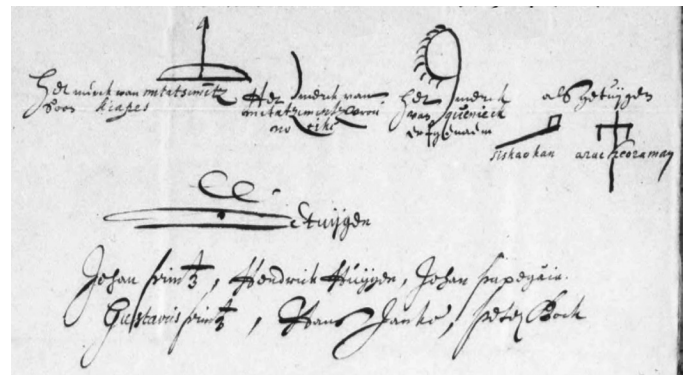 Het merck van mitatsimint
Soon kiapes
Het merck van
mitatsimint
no
het merck
van quenieck
als getuijgen
siskaohan
aruckeoraman
getuijgen
Johan printz, Hendrick Huijgen, Johan papegåia.
Gustavus printz, Hans Janke, peter Bock